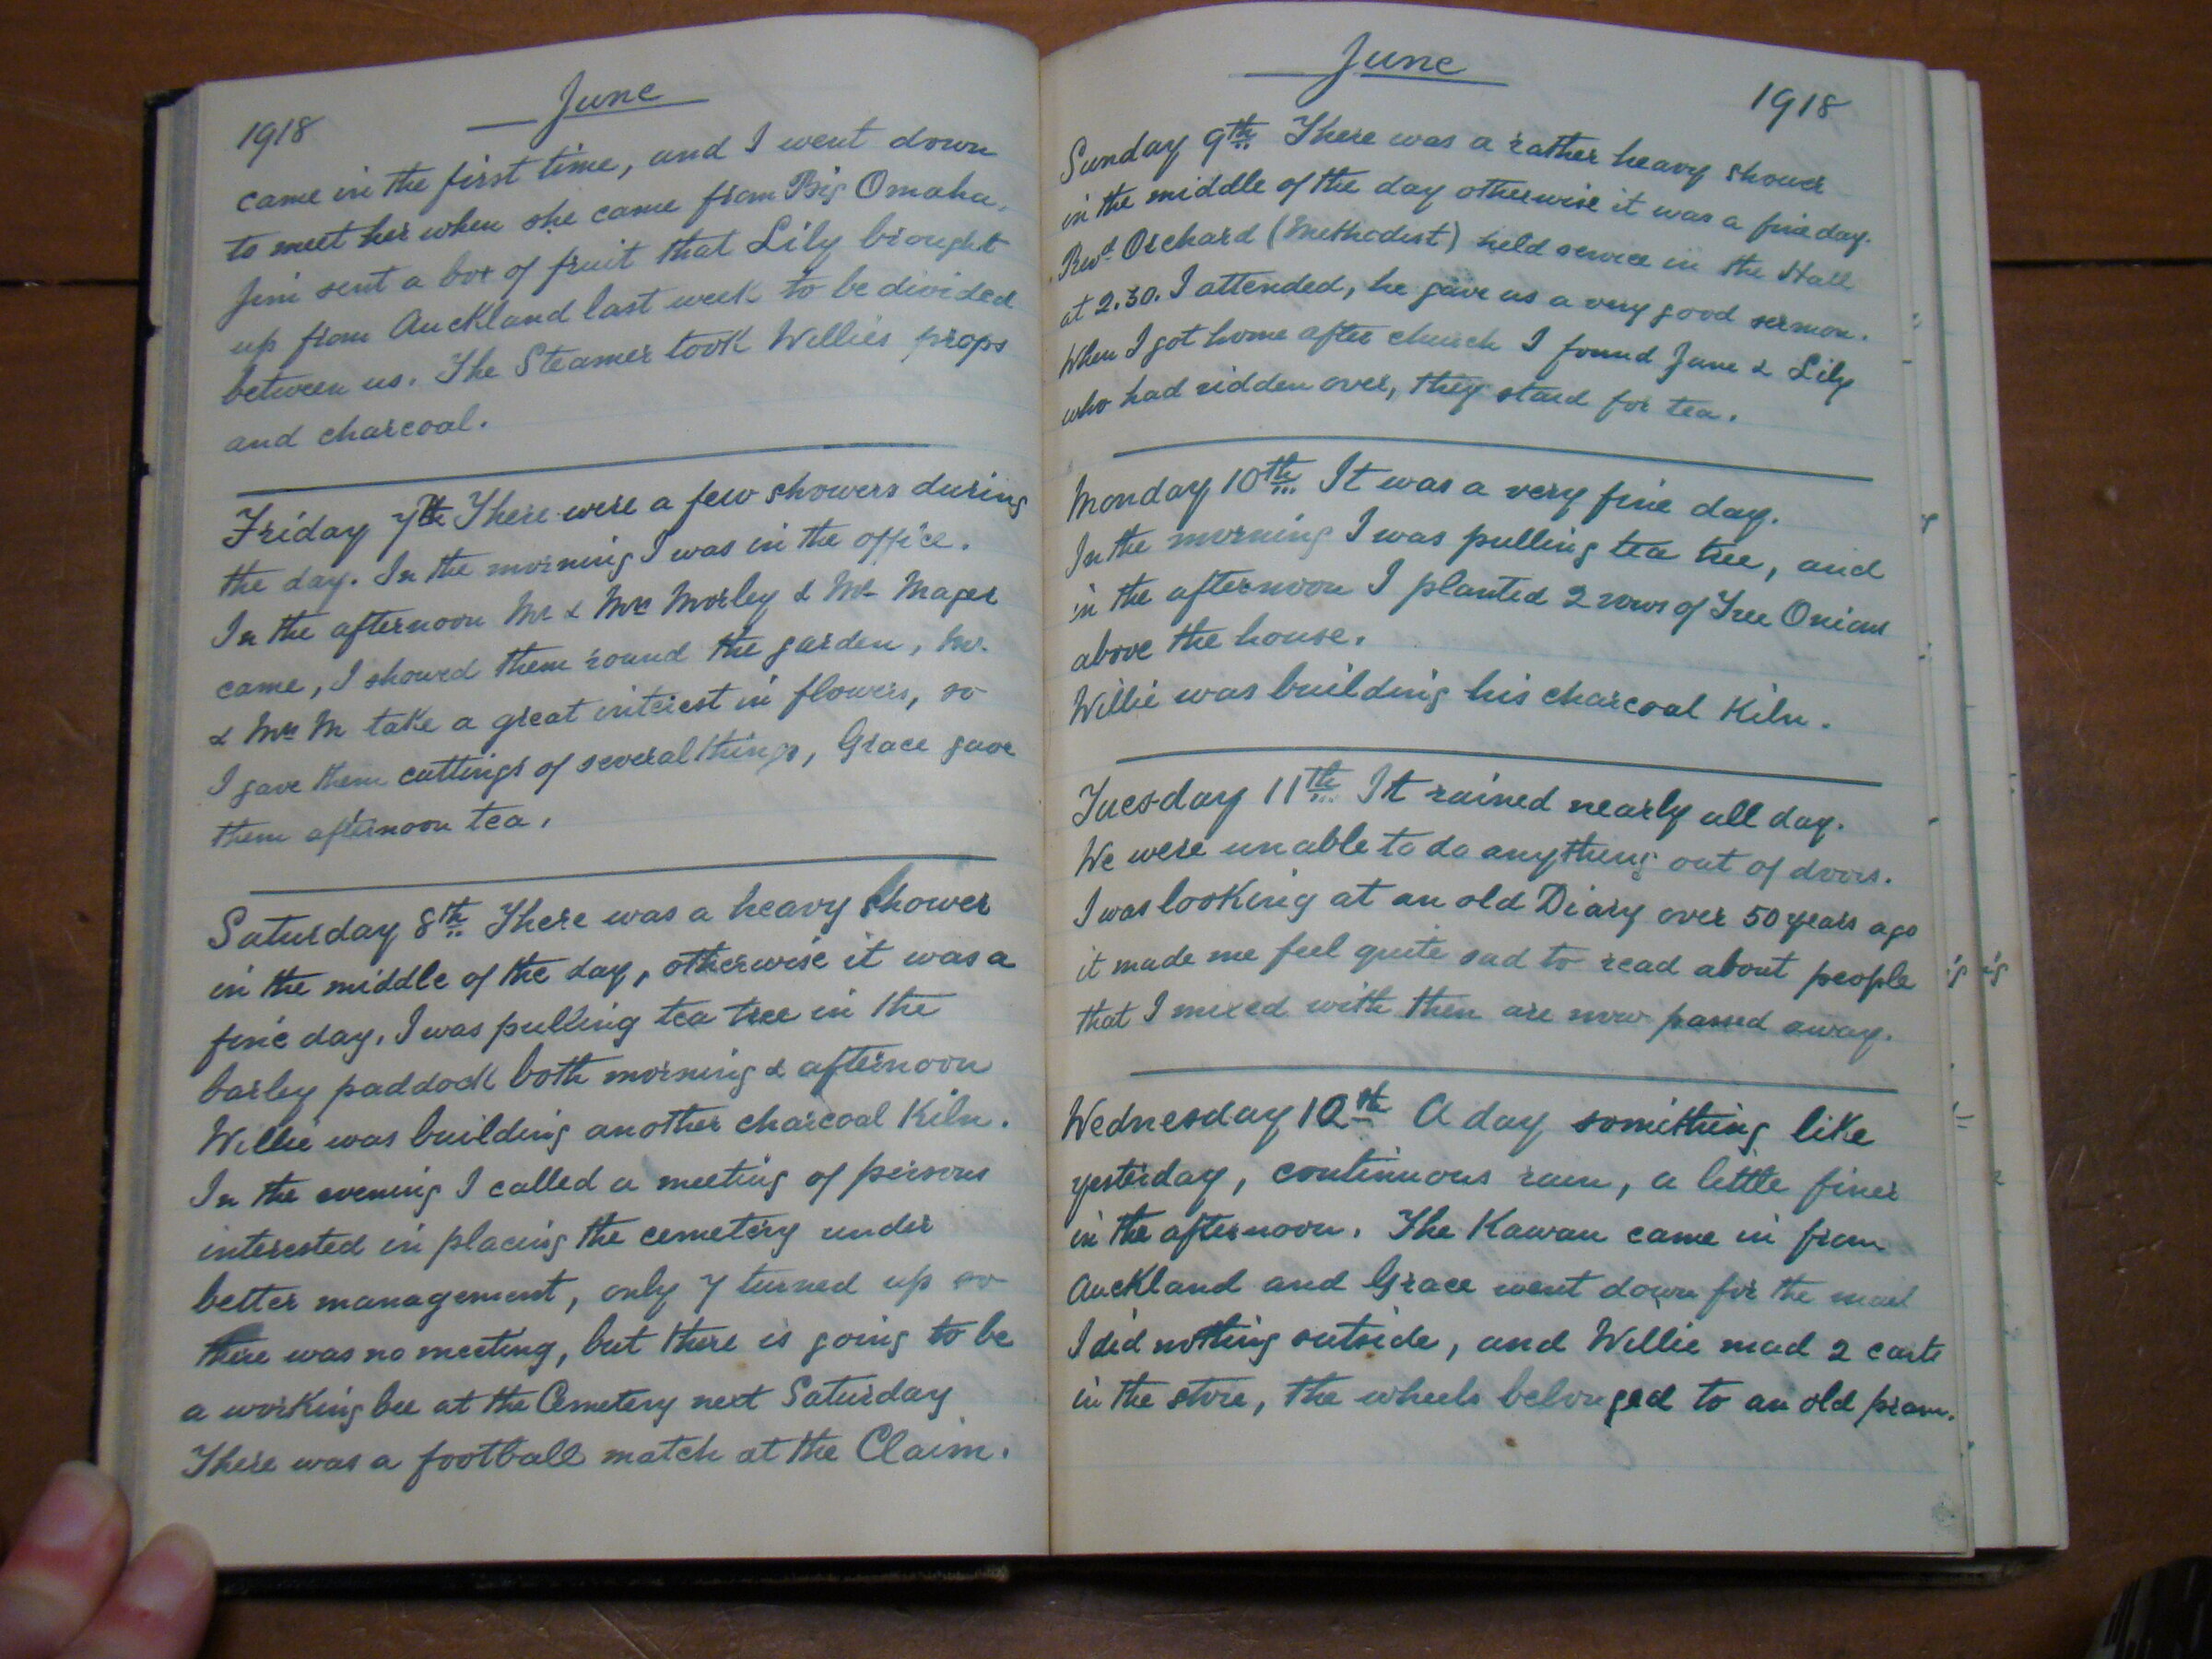 June
1918
came in the first time, and I went down
to meet her when she came from Big Omaha.
Jim sent a box of fruit that Lily brought
up from Auckland last week to be divided
between us. The Steamer took Willies props
and charcoal.
Friday 7th There were a few showers during
the day. In the morning I was in the office.
In the afternoon Mr & Mrs Morley & Mr
came, I showed them round the garden, Mr.
& Mrs M take a great interest in flowers, so
I gave them cuttings of several things, Grace gave
them afternoon tea.
Saturday 8th There was a heavy shower
in the middle of the day, otherwise it was a
fine day. I was pulling tea tree in the
barley paddock both morning & afternoon
Willie was building another charcoal Kiln.
In the evening I called a meeting of persons
interested in placing the cemetery under
better management, only 7 turned up so
there was no meeting, but there is going to be
a working bee at the Cemetery next Saturday
There was a football match at the Claim.
June
1918
Sunday 9th There was a rather heavy shower
in the middle of the day otherwise it was a fine day.
Revd Orchard (Methodist) held service in the Hall
at 2.30. I attended, he gave us a very good sermon.
When I got home after church I found June & Lily
who had ridden over, they staid for tea.
Monday 10th It was a very fine day.
In the morning I was pulling tea tree, and
in the afternoon I planted 2 rows of Tree Onions
above the house.
Willie was building his charcoal Kiln.
Tuesday 11th It rained nearly all day.
We were unable to do anything out of doors.
I was looking at an old Diary over 50 years ago
it made me feel quite sad to read about people
that I mixed with then are now passed away.
Wednesday 12th A day something like
yesterday, continuous rain, a little finer
in the afternoon. The Kawau came in from
Auckland and Grace went down for the mail
I did nothing outside, and Willie mad 2 carts
in the store, the wheels belonged to an old pram.